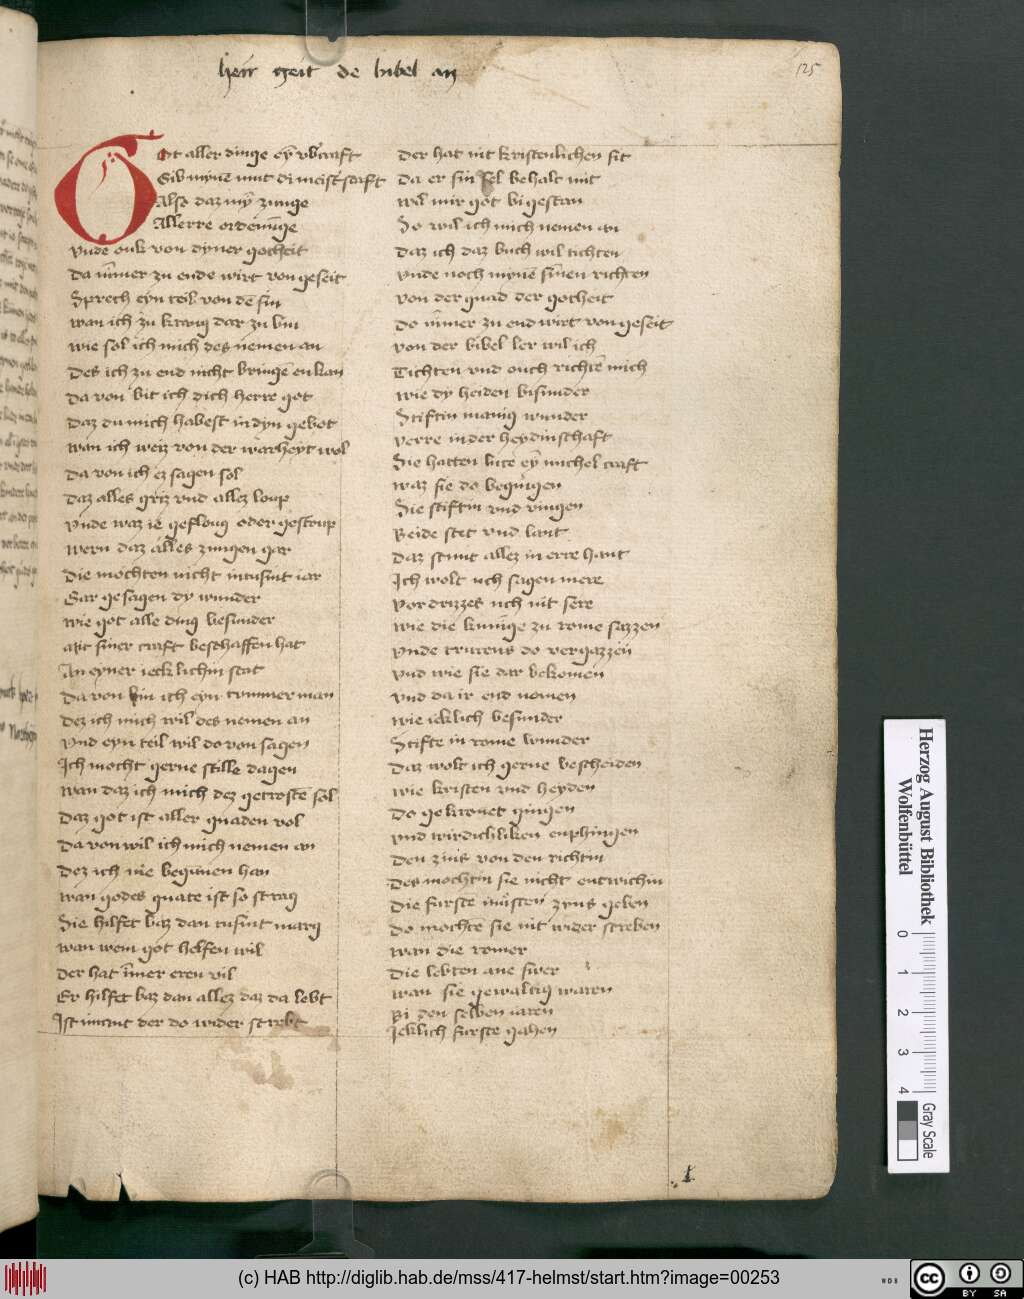 herr geit de bibel an
125
Got aller dinge eȳ vb'craft
Gib mynē mut di meist'schaft
Also daz mȳ zunge
Allerre ordenūge
vnde ouk von dyner gotheit
Da īmer zu ende wirt von geseit
Sprech eyn teil von dē sin
wan ich zu krang dar zu bin
wie sol ich mich des nemen an
Des ich zu end nicht bringē enkan
Da von bit ich dich herre got
Daz du mich habest in dyn gebot
wan ich weiz von der warheyt wol
Da von ich ez sagen sol
Daz alles griz vnd allez loup
vnde waz ie gefloug oder gestoup
wern daz alles zungen gar
Die mochten nicht in tusint iar
Gar gesagen dy wunder
wie got alle ding besunder
Mit siner craft beschaffen hat
An eyner iecklichin stat
Da von bin ich eyn tummer man
Dez ich mich wil des nemen an
vnd eyn teil wil do von sagen
Ich mocht gerne stille dagen
wan daz ich mich dez getrostē sol
Daz got ist aller gnaden vol
Da von wil ich mich nemen an
Dez ich nie begūnen han
wan godes gnate ist so strag
Sie hilfet baz dan tusint marg
wan wem got helfen wil
Der hat īmer eren vil
Er hilfet baz dan allez daz da lebt
Ist imant der do wider strebt
Der hat nit kristenlichen sit
Da er sin sel behalt mit
wil mir got bi gestan
So wil ich mich nemen an
Daz ich daz buch wil tichten
vnde noch mynē sīnen richten
von der gnad der gotheit
Do īmer zu end wirt von geseit
von der bibel ler wil ich
Tichten vnd ouch richtē mich
wie dy heiden bisunder
Stiftin manig wunder
verre in der heydinschaft
Sie hatten lute eȳ michel craft
waz sie do begingen
Sie stiftin vnd vingen
Beide stet vnd lant
Daz stunt allez in erre hant
Ich wolt uch sagen mere
vordrizzet uch nit sere
wie die kunige zu rome sazzen
vnde truwens do vergazzen
vnd wie sie dar bekomen
vnd da ir end nomen
wie icklich besunder
Stifte in rome wunder
Daz wolt ich gerne bescheiden
wie kristen vnd heyden
Do gekronet gingen
vnd wirdichliken enphingen
Den zins von den richtin
Des mochtin sie nicht entwichin
Die furste mūsten zyns geben
Do mochtē sie nit wider streben
wan die romer
Die lebten ane swer
wan sie gewaltig waren
Bi den selben iaren
Icklich furste gahen
Herzog August Bibliothek
Wolfenbüttel
0 1 2 3 4
Gray Scale
(c) HAB http://diglib.hab.de/mss/417-helmst/start.htm?image=00253
WDB
cc BY SA